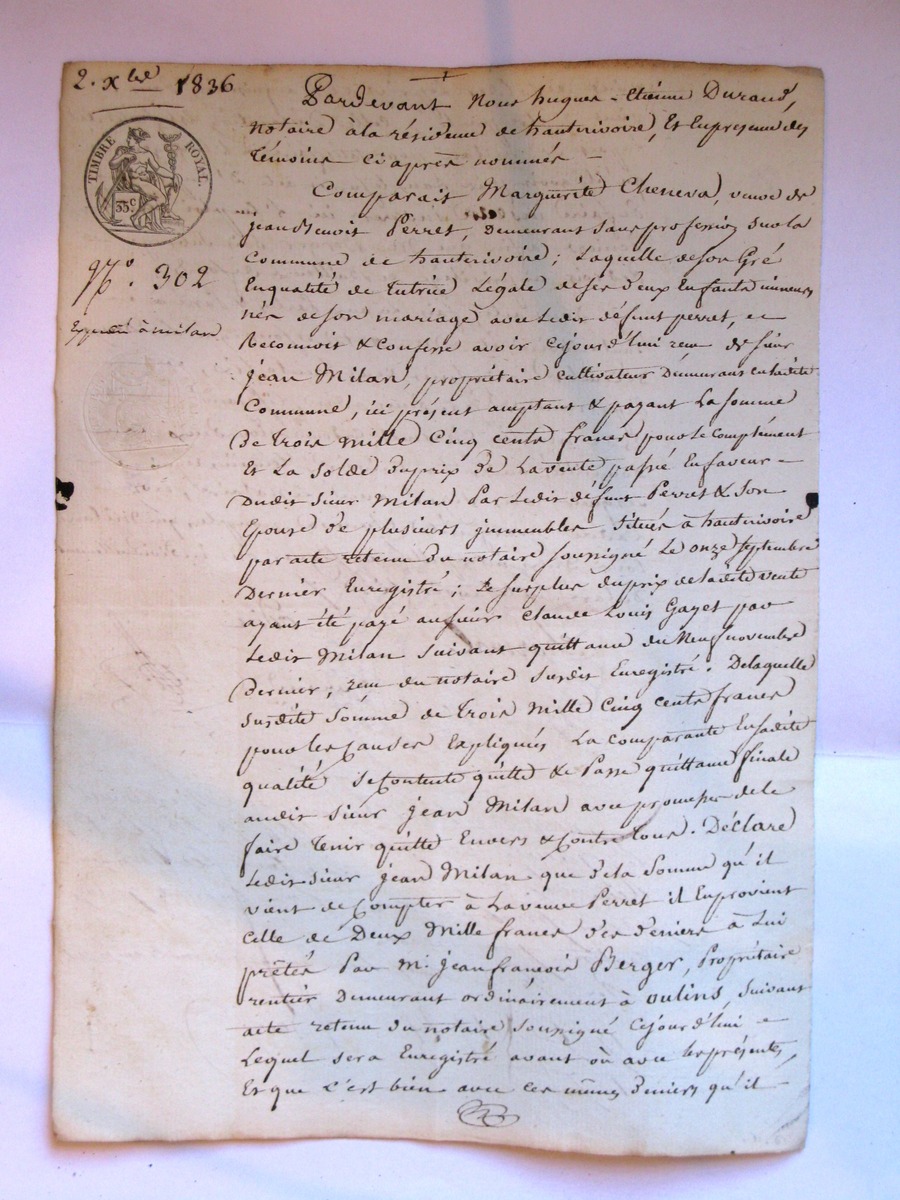 2. Xbre 1836
TIMBRE ROYAL.
35c
No. 302
Expédié à milan
Pardevant Nous hugues-Etienne Durand,
notaire à la résidence de hauterivoire, Et En presence des
Témoins Ci après nommés –
Comparait Marguerite Cheneva, veuve de
jean Benoit Perret, demeurant sans profession sur la
Commune de hauterivoire; Laquelle de son Gré
En qualité de Tutrice Légale de ses deux Enfants mineurs
nés de son mariage avec Ledit défunt perret, a
Reconnoit & Confesse avoir Cejourd'hui reçu de sieur
jean Milan, propriétaire cultivateur Demeurans en ladite
Commune, ici présent acceptant & payant La somme
De Trois Mille Cinq cents francs pour le Complément
Et La Solde du prix de La vente passée En faveur –
Dudit Sieur Milan Par Ledit défunt Perret & Son
Epouse de plusieurs immeubles Situés à hauterivoire
par acte retenu du notaire soussigné Le onze septembre
Dernier Enregistré; Le surplus du prix de ladite vente
ayant été payé au sieur Claude Louis Gayet par
Ledit Milan suivant quittance du Neuf novembre
Dernier, reçu du notaire susdit Enregistré. De laquelle
susdite Somme de Trois Mille Cinq cents francs
pour les Causes Expliquées La comparante En sadite
qualité se Contente quitte & Passe quittance finale
audit sieur jean Milan avec promesse de le
faire Tenir quitte Envers & Contre Tous. Déclare
Ledit sieur jean Milan que de la Somme qu'il
vient de Compter à La veuve Perret il En provient
Celle de Deux Mille francs des deniers à Lui
prêtés Par Mr. jean françois Berger, Propriétaire
rentier Demeurant ordinairement à oulins, suivant
acte retenu du notaire soussigné Cejourd'hui –
Lequel sera Enregistré avant où avec les présentes,
Et que C'est bien avec ces mêmes deniers qu'il –